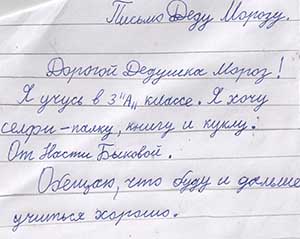 Письмо Деду Морозу.
Дорогой Дедушка Мороз!
Я учусь в 3 "А" классе. Я хочу
селфи-палку, книгу и куклу.
От Насти Быковой.
Обещаю, что буду и дальше
учиться хорошо.